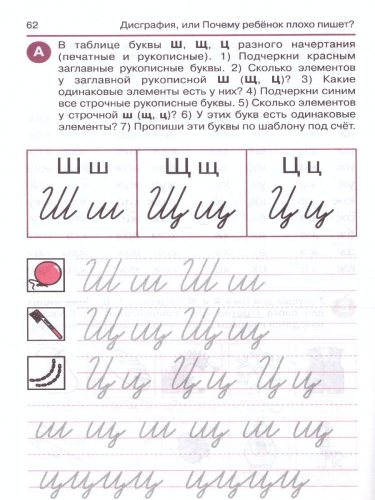 62
Дисграфия, или Почему ребёнок плохо пишет?
А
В таблице буквы Ш, Щ, Ц разного начертания
(печатные и рукописные). 1) Подчеркни красным
заглавные рукописные буквы. 2) Сколько элементов
у заглавной рукописной Ш (Щ, Ц)? 3) Какие
одинаковые элементы есть у них? 4) Подчеркни синим
все строчные рукописные буквы. 5) Сколько элементов
у строчной ш (щ, ц)? 6) У этих букв есть одинаковые
элементы? 7) Пропиши эти буквы по шаблону под счёт.
Ш ш Щ щ Ц ц
Ш ш Щ щ Ц ц
Ш ш Ш ш Ш
Щ щ Щ щ Щ
Ц ц Ц ц Ц ц
ш щ ш щ ш щ
цццц цццц